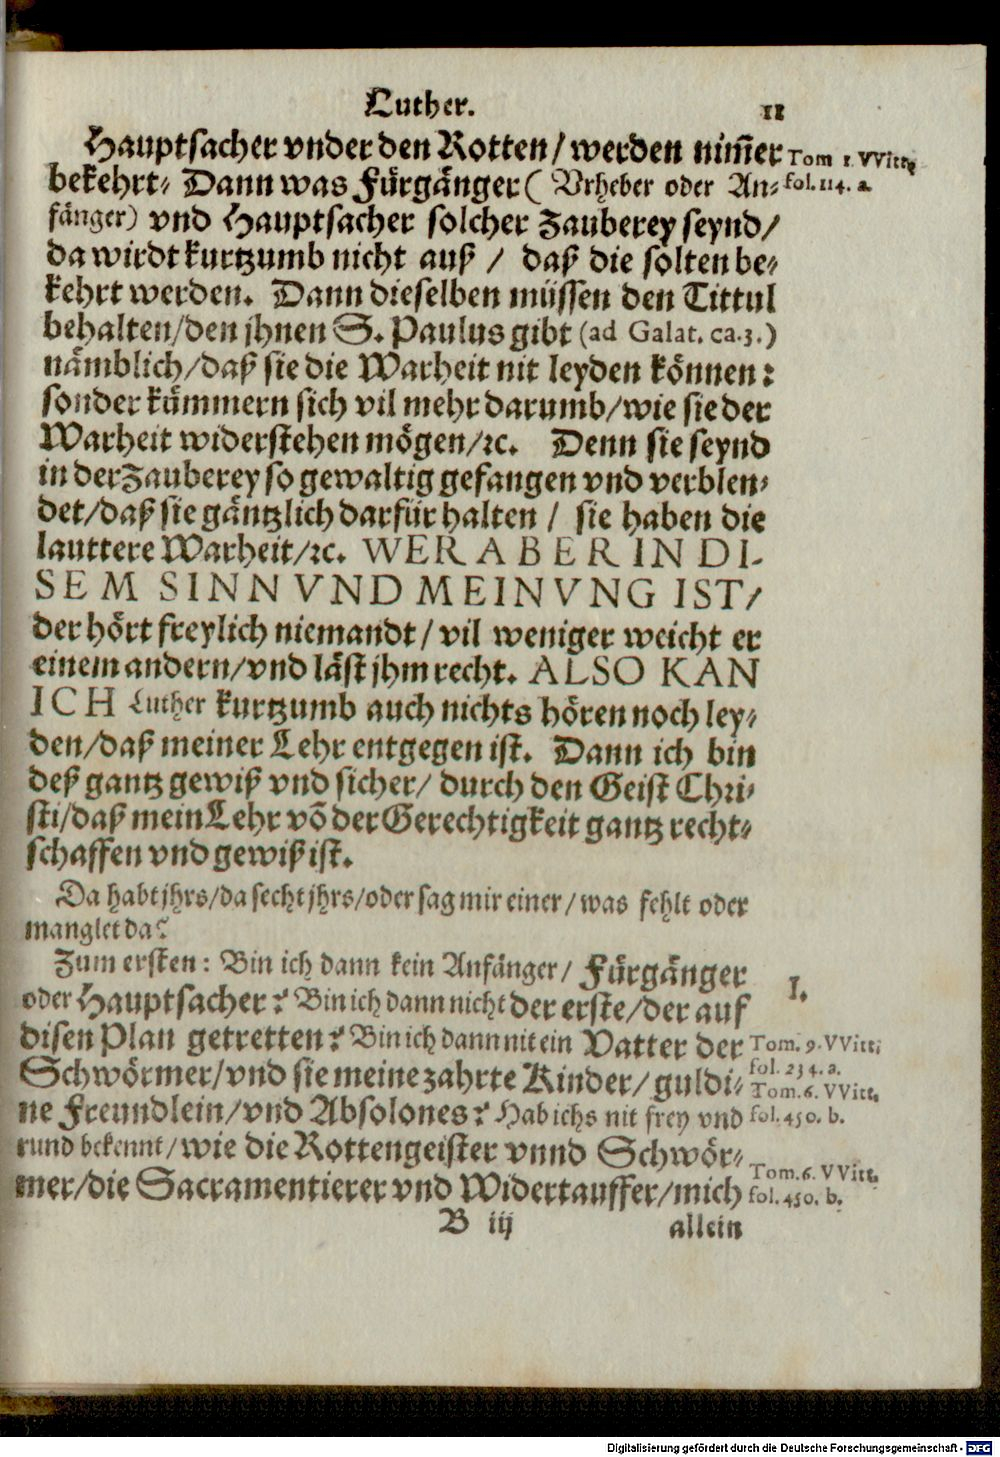 Luther. 11
Hauptsacher vnder den Rotten/ werden nim̃er
Tom 1. VVitt.
bekehrt. Dann was Fürgänger ( Vrheber oder An-
fol. 114. a.
fänger) vnd Hauptsacher solcher Zauberey seynd/
da wirdt kurtzumb nicht auß / daß die solten be-
kehrt werden. Dann dieselben müssen den Tittul
behalten/den jhnen S. Paulus gibt (ad Galat. ca.3.)
nämblich/daß sie die Warheit nit leyden können:
sonder kümmern sich vil mehr darumb/wie sie der
Warheit widerstehen mögen/ꝛc. Denn sie seynd
in der Zauberey so gewaltig gefangen vnd verblen-
det/daß sie gäntzlich darfür halten / sie haben die
lauttere Warheit/ꝛc. WER ABER IN DI-
SEM SINN VND MEINVNG IST/
der hört freylich niemandt/ vil weniger weicht er
einem andern/vnd läst jhm recht. ALSO KAN
ICH Luther kurtzumb auch nichts hören noch ley-
den/daß meiner Lehr entgegen ist. Dann ich bin
deß gantz gewiß vnd sicher/ durch den Geist Chri-
sti/daß mein Lehr võ der Gerechtigkeit gantz recht-
schaffen vnd gewiß ist.
Da habt jhrs/da secht jhrs/oder sag mir einer/ was fehlt oder
manglet da?
Zum ersten: Bin ich dann kein Anfänger/ Fürgänger
I.
oder Hauptsacher? Bin ich dann nicht der erste/der auf
disen Plan getretten? Bin ich dann nit ein Vatter der
Tom. 9. VVitt.
fol. 234. a.
Schwörmer/vnd sie meine zahrte Kinder/ guldi-
Tom. 6. VVitt.
ne Freundlein/vnd Absolones? Hab ichs nit frey vnd
fol. 450. b.
rund bekennt/ wie die Rottengeister vnnd Schwör-
Tom. 6. VVitt.
mer/die Sacramentierer vnd Widertauffer/mich
fol. 450. b.
B iij allein
Digitalisierung gefördert durch die Deutsche Forschungsgemeinschaft - DFG